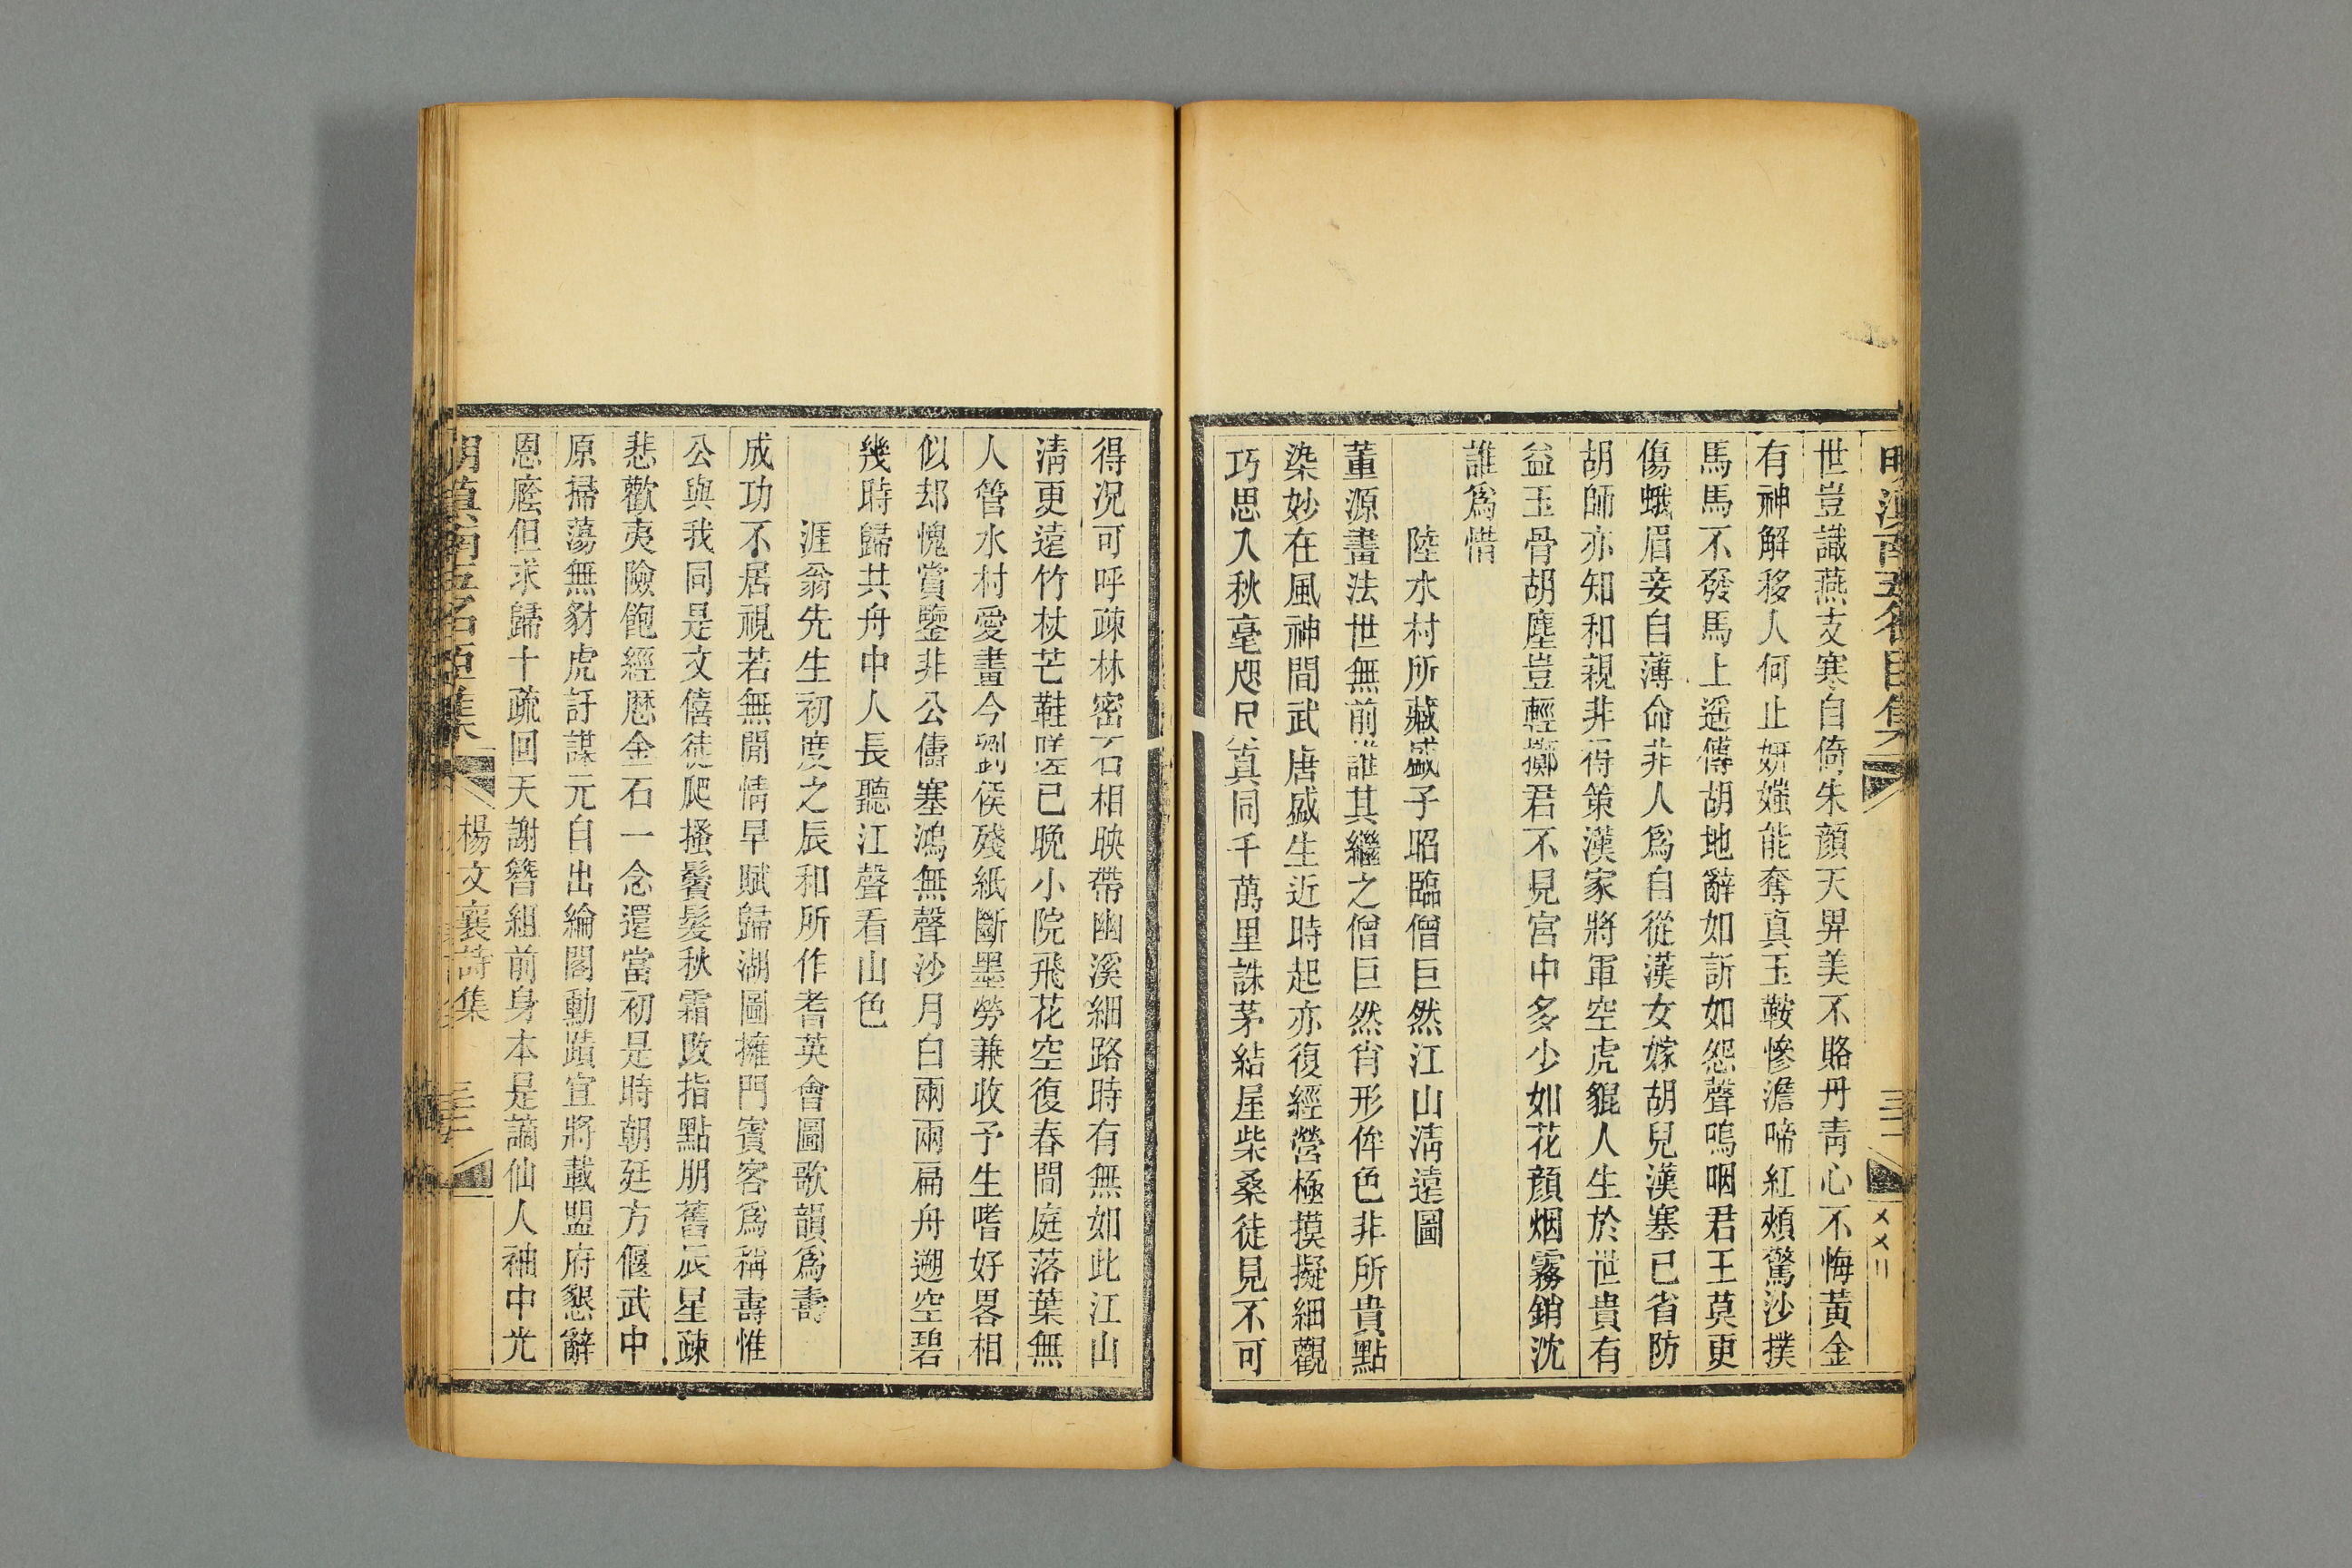 世豈識燕支寒自倚朱顏天畀美不賂丹青心不悔黃金
有神解移人何止妍媸能奪真玉鞍慘澹啼紅頰驚沙撲
馬馬不發馬上遥傳胡地辭如訴如怨聲嗚咽君王莫更
傷蛾眉妾自薄命非人爲自從漢女嫁胡兒漢塞已省防
胡師亦知和親非得策漢家將軍空虎貔人生於世貴有
益玉骨胡塵豈輕擲君不見宮中多少如花顔烟霧銷沈
誰爲惜
陸水村所藏盛子昭臨僧巨然江山清遠圖
董源畫法世無前誰其繼之僧巨然肖形侔色非所貴點
染妙在風神間武唐盛生近時起亦復經營極摸擬細觀
巧思入秋毫咫尺真同千萬里誅茅結屋柴桑徒見不可
得況可呼疎林密石相映帶幽溪細路時有無如此江山
清更遠竹杖芒鞋已晩小院飛花空復春間庭落葉無
人管水村愛畫今劉侯殘紙斷墨勞兼收予生嗜好畧相
似却愧賞鑒非公儔塞鴻無聲沙月白兩兩扁舟遡空碧
幾時歸共舟中人長聽江聲看山色
涯翁先生初度之辰和所作耆英會圖歌韻爲壽
成功不居視若無閒情早賦歸湖圖擁門賓客爲稱壽惟
公與我同是文僖徒爬搔鬢髮秋霜敗指點朋舊辰星疎
悲歡夷險飽經歷金石一念還當初是時朝廷方偃武中
原掃蕩無豺虎訏謨元自出綸閣勳蹟宜將載盟府懇辭
恩廕但求歸十疏回天謝簪組前身本是謫仙人袖中光
楊文襄詩集